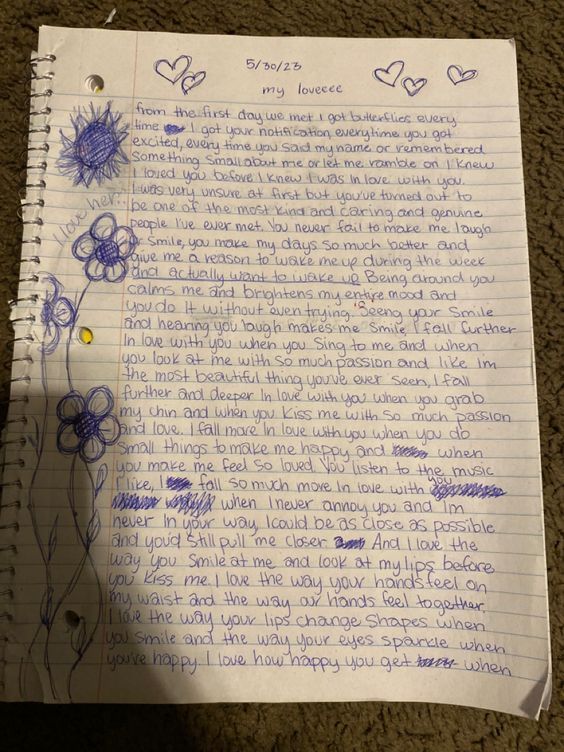 5/30/23
my loveeee
from the first day we met I got butterflies every
time I got your notification, everytime you got
excited, every time you said my name or remembered
something small about me or let me ramble on I knew
I loved you before I knew I was in love with you.
I was very unsure at first but you've turned out to
be one of the most kind and caring and genuine
people I've ever met. You never fail to make me laugh
or smile, you make my days so much better and
give me a reason to wake me up during the week
and actually want to wake up Being around you
calms me and brightens my entire mood and
you do it without even trying. Seeing your smile
and hearing you laugh makes me smile, I fall further
in love with you when you sing to me and when
you look at me with so much passion and like im
the most beautiful thing you've ever seen, I fall
further and deeper in love with you when you grab
my chin and when you kiss me with so much passion
and love. I fall more in love with you when you do
small things to make me happy and when
you make me feel so loved. You listen to the music
I like, I fall so much more in love with you
when I never annoy you and Im
never in your way, I could be as close as possible
and you'd still pull me closer And I love the
way you smile at me and look at my lips before
you kiss me. I love the way your hands feel on
my waist and the way our hands feel together
I love the way your lips change shapes when
you smile and the way your eyes sparkle when
you're happy I love how happy you get when
I love her!